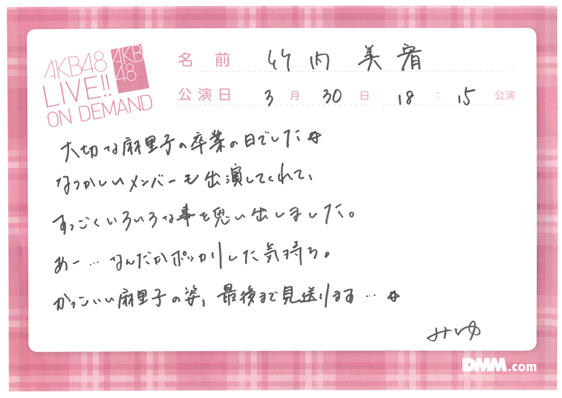 AKB48
LIVE!!
ON DEMAND
AKB
48
名前 竹内 美宥
公演日 3月30日 18:15公演
大切な麻里子の卒業の日でした☆
なつかしいメンバーも出演してくれて、
すっごくいろいろな事を思い出しました。
あー…なんだかポッカリした気持ち。
かっこいい麻里子の姿、最後まで見送りまする…☆
みゆ
DMM.com